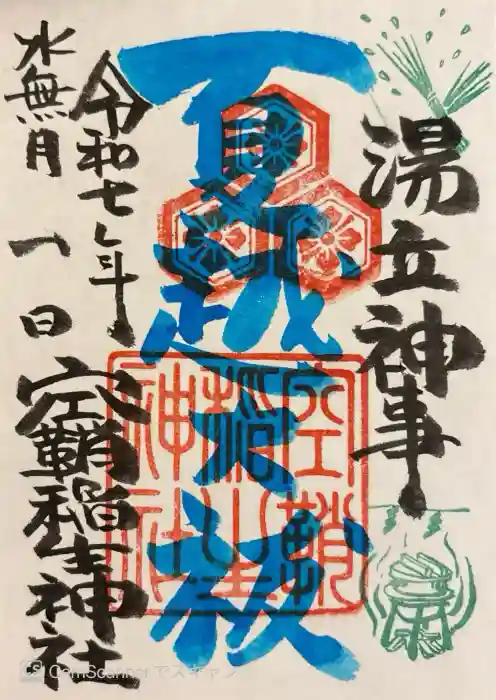 湯立神事
夏越大祓
空鞘
稲生
神社
令和七年
水無月一日
空鞘稲生神社
CamScannerでスキャン